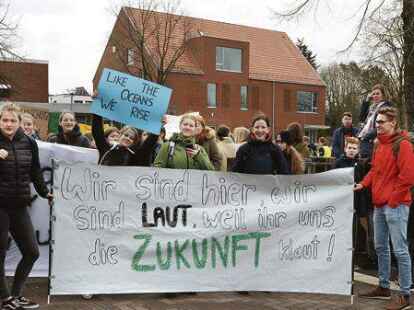 LIKE THE
OCEANS
WE RISE
Wir sind hier wir
sind LAUT, weil ihr uns
die ZUKUNFT klaut!